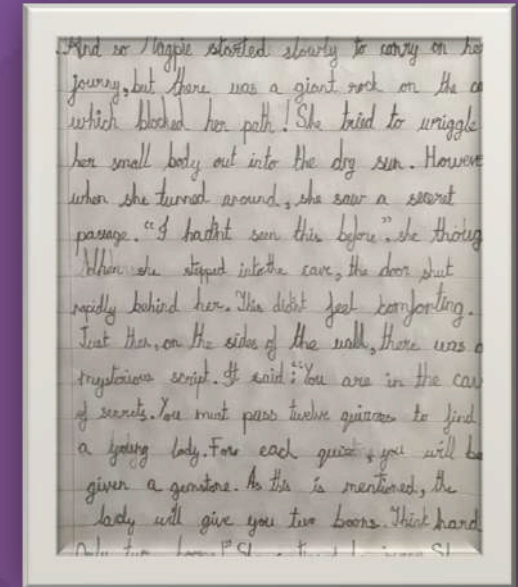 And so Magpie started slowly to carry on he
journy, but there was a giant rock on the
which blocked her path! She tried to wriggle
her small body out into the dry sun. Howeve
when she turned around, she saw a secret
passage. "I hadn't seen this before", she thoug
When she stepped into the cave, the door shut
rapidly behind her. This didn't feel comforting.
Just then, on the sides of the wall, there was a
mysterious script. It said: "You are in the cav
of secrets. You must pass twelve quizzes to find
a young lady. For each quizz, you will be
given a gemstone. As this is mentioned, the
lady will give you two boons. Think hard
Only two boons!"